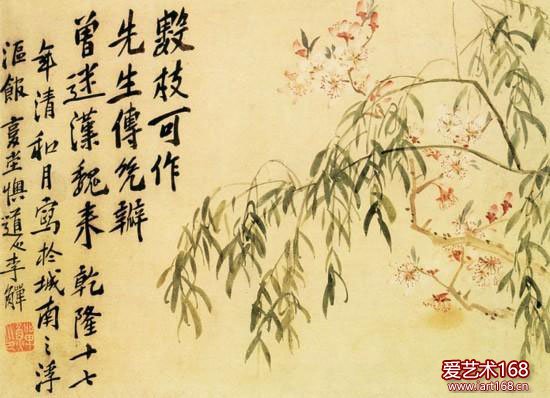 數枝可作
先生傳幾瓣
曾迷漢魏來 乾隆十七
年清和月寫於城南之浮
漚館復堂懊道人李鱓
爱艺术168
www.iart168.com